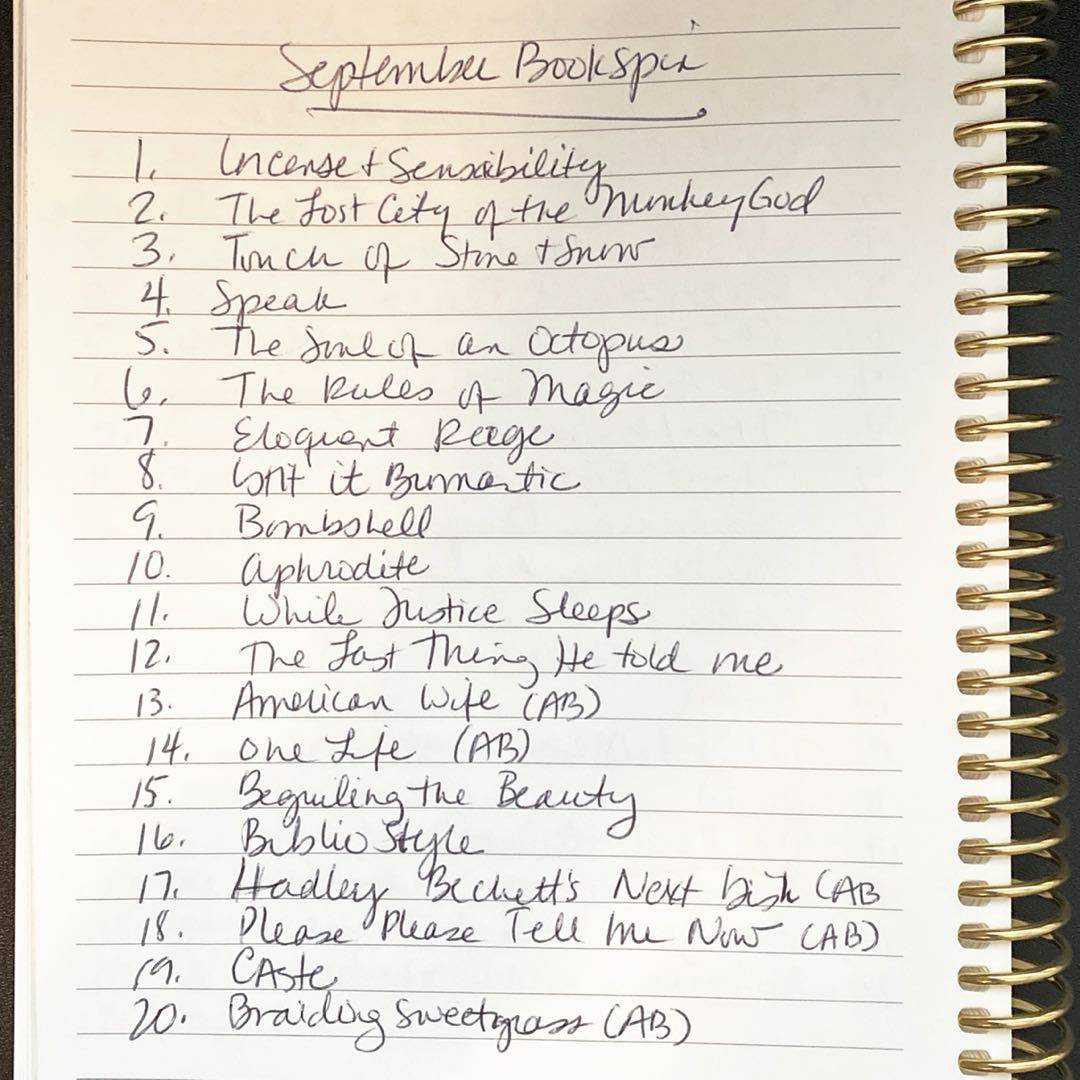 September Bookspin
1. Incense + Sensibility
2. The Lost City of the Monkey God
3. Touch of Stone + Snow
4. Speak
5. The Soul of an Octopus
6. The Rules of Magic
7. Eloquent Rage
8. Isn't it Bromantic
9. Bombshell
10. Aphrodite
11. While Justice Sleeps
12. The Last Thing He told me
13. American Wife (AB)
14. One Life (AB)
15. Beguiling the Beauty
16. Biblio Style
17. Hadley Beckett's Next Dish (AB
18. Please Please Tell Me Now (AB)
19. CAste
20. Braiding Sweetgrass (AB)